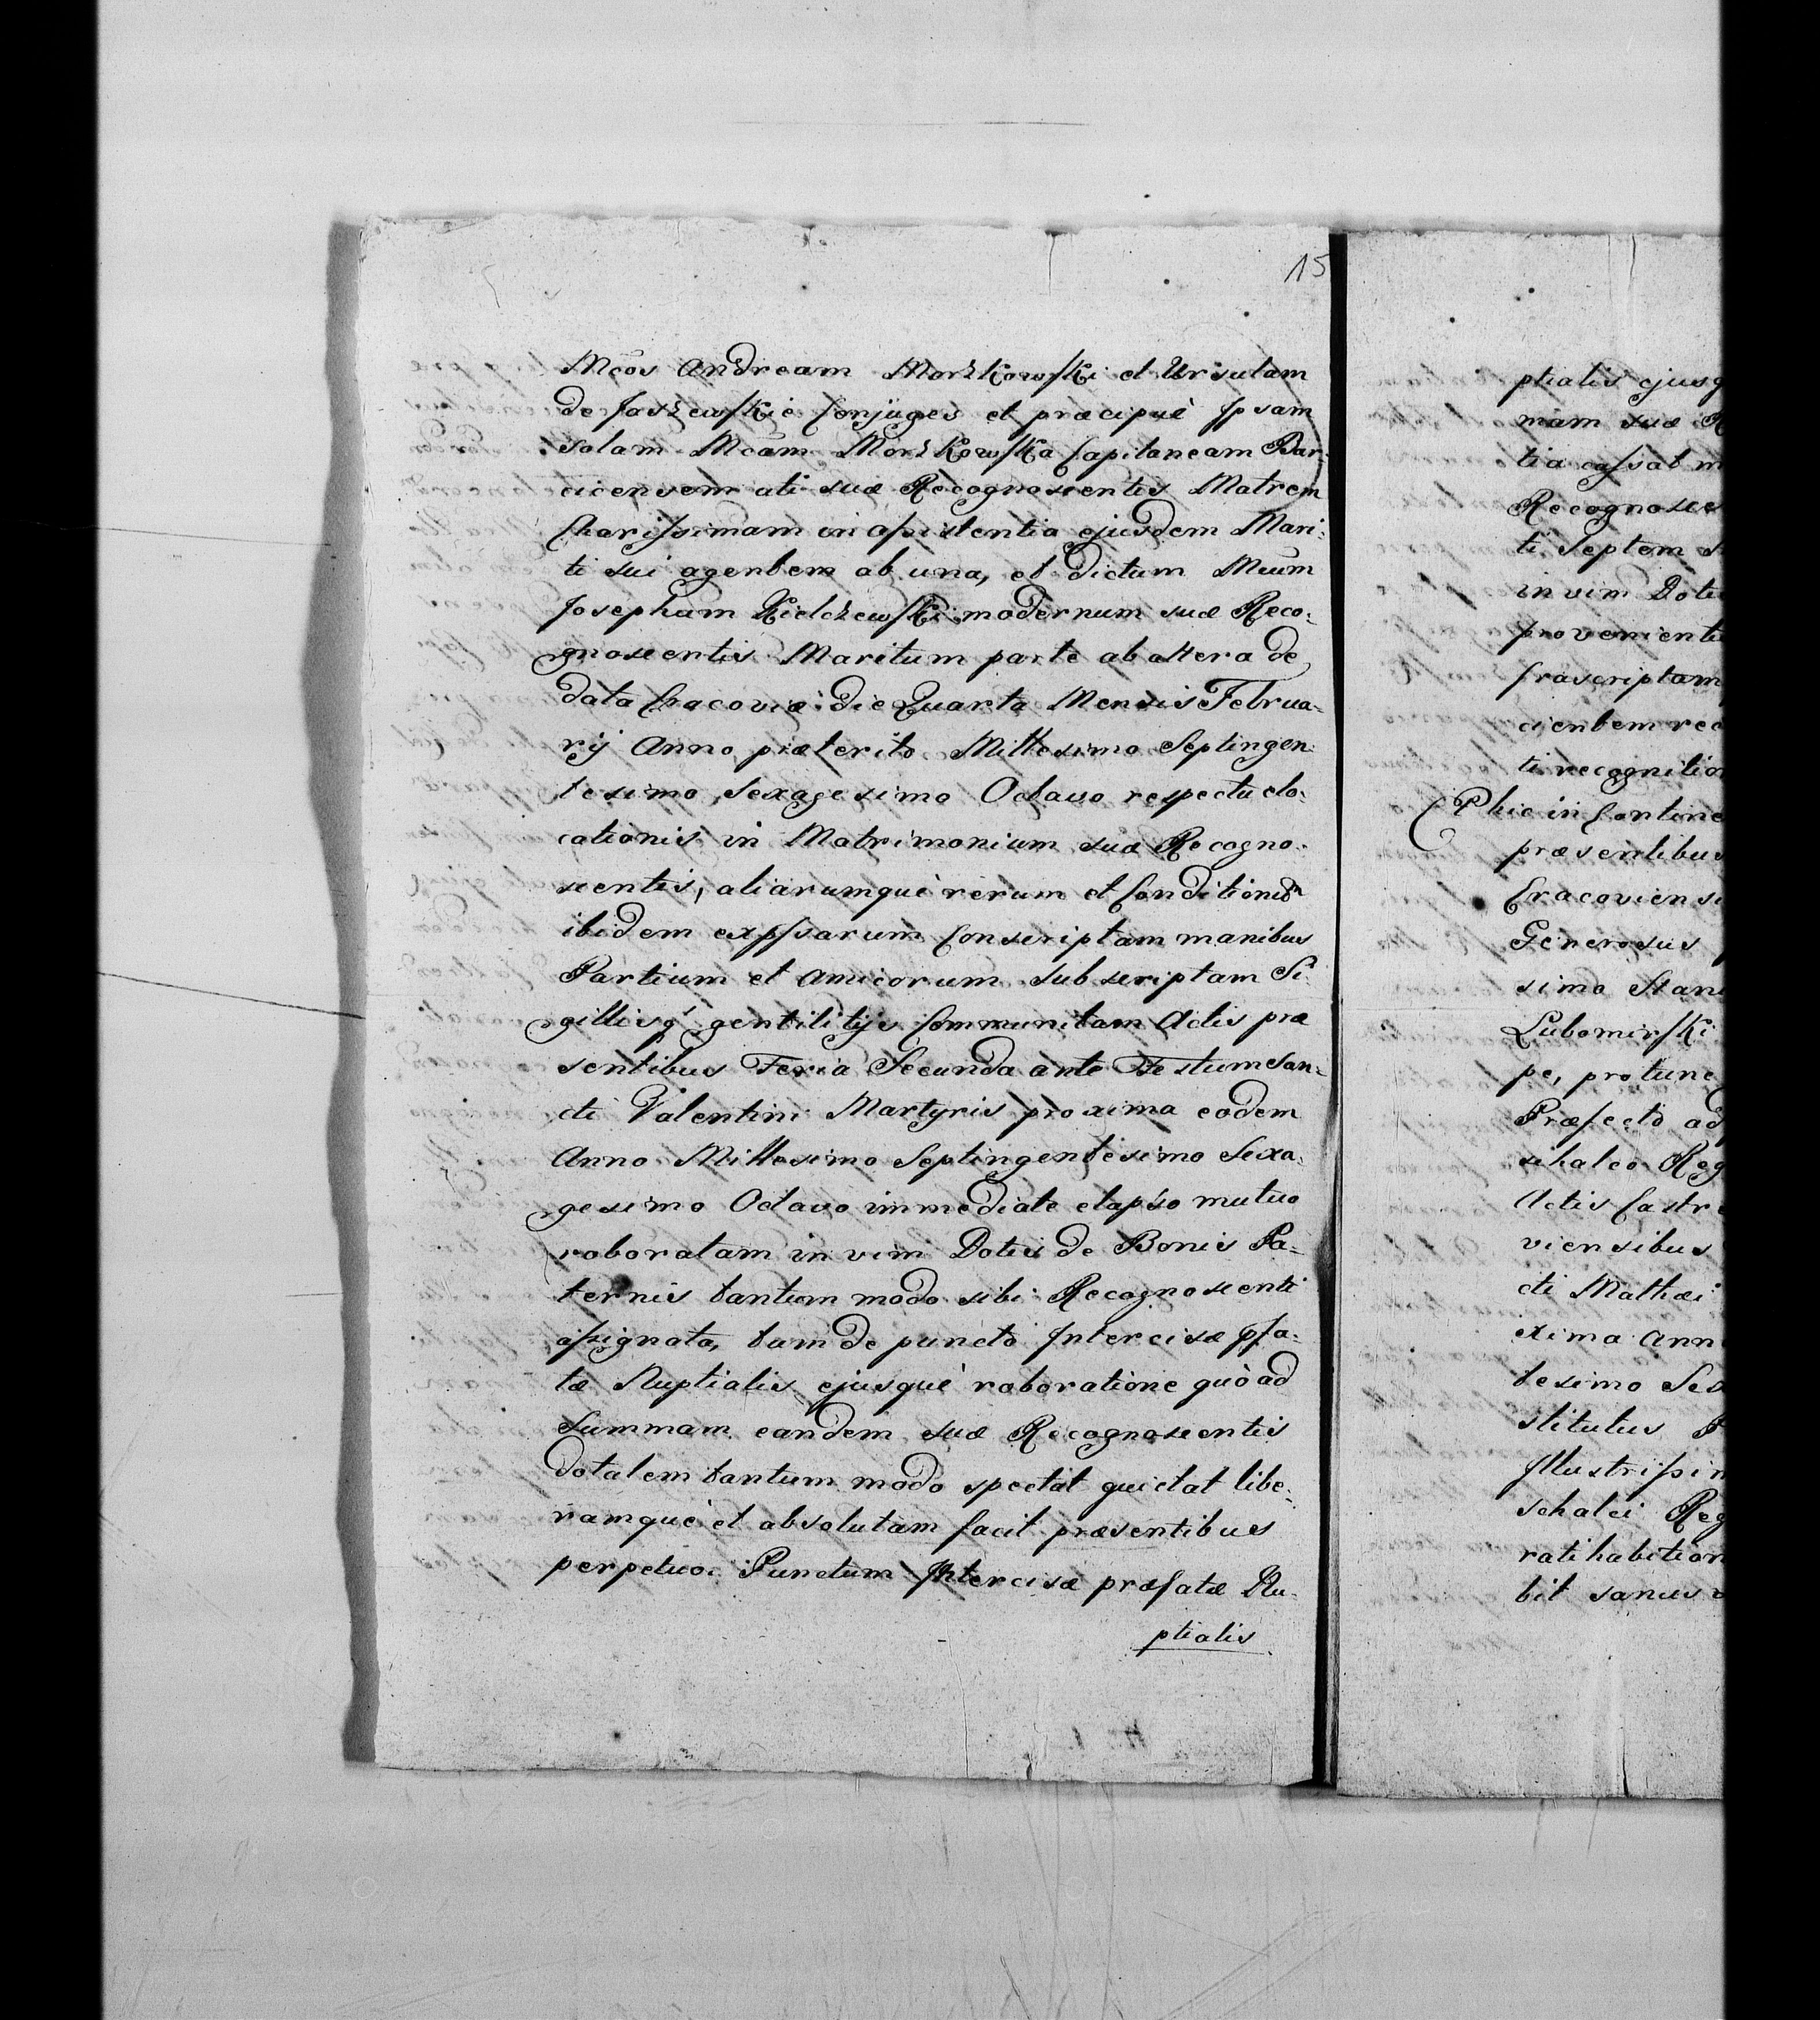 15
Mcos Andream Morzkowski et Ursulam
de Jaszewskie Conjuges et præcipuè Ipsam
solam Mcam Morzkowska Capitaneam Bar-
cicensem uti suæ Recognoscentis Matrem
Charissimam in assistentia ejusdem Mari-
ti sui agentem ab una, et dictum Mcum
Josephum Kielczewski modernum suæ Reco-
gnoscentis Maritum parte ab altera de
data Cracoviæ die Quarta Mensis Februa-
rij Anno præterito Millesimo Septingen-
tesimo Sexagesimo Octavo respectu elo-
cationis in Matrimonium suæ Recogno-
scentis, aliarumquè rerum et Conditionũ
ibidem expssarum Conscriptam manibus
Partium et Amicorum subscriptam Si-
gillisq' gentilitijs Communitam Actis præ
sentibus Feria Secunda ante Festum San-
cti Valentini Martyris proxima eodem
Anno Millesimo Septingentesimo Sexa-
gesimo Octavo immediate elapso mutuo
roboratam in vim Dotis de Bonis Pa-
ternis tantum modo sibi Recognoscenti
assignata, tam de puncto Intercisæ pfa-
tæ Nuptialis ejusquè roboratione quò ad
Summam eandem suæ Recognoscentis
dotalem tantum modo spectat quietat libe-
ramquè et absolutam facit præsentibus
perpetuo. Punctum Intercisæ præfatæ Nu-
ptialis
ptialis ejusq
mam suæ R
tia cassat m
Recognosce
ti Septem
in vim Doti
provenient
scriptam
cientem rec
ti recognitio
hic in Contine
præsentibus
Cracoviensi
Generosus
simo Stani
Lubomirski
pe, pro tunc
Præfecto ad
schalco Reg
Actis Castre
viensibus
cti Mathæi
xima Ann
tesimo Sex
stitutus
Illustrissim
schalci Reg
ratihabition
bit sanus